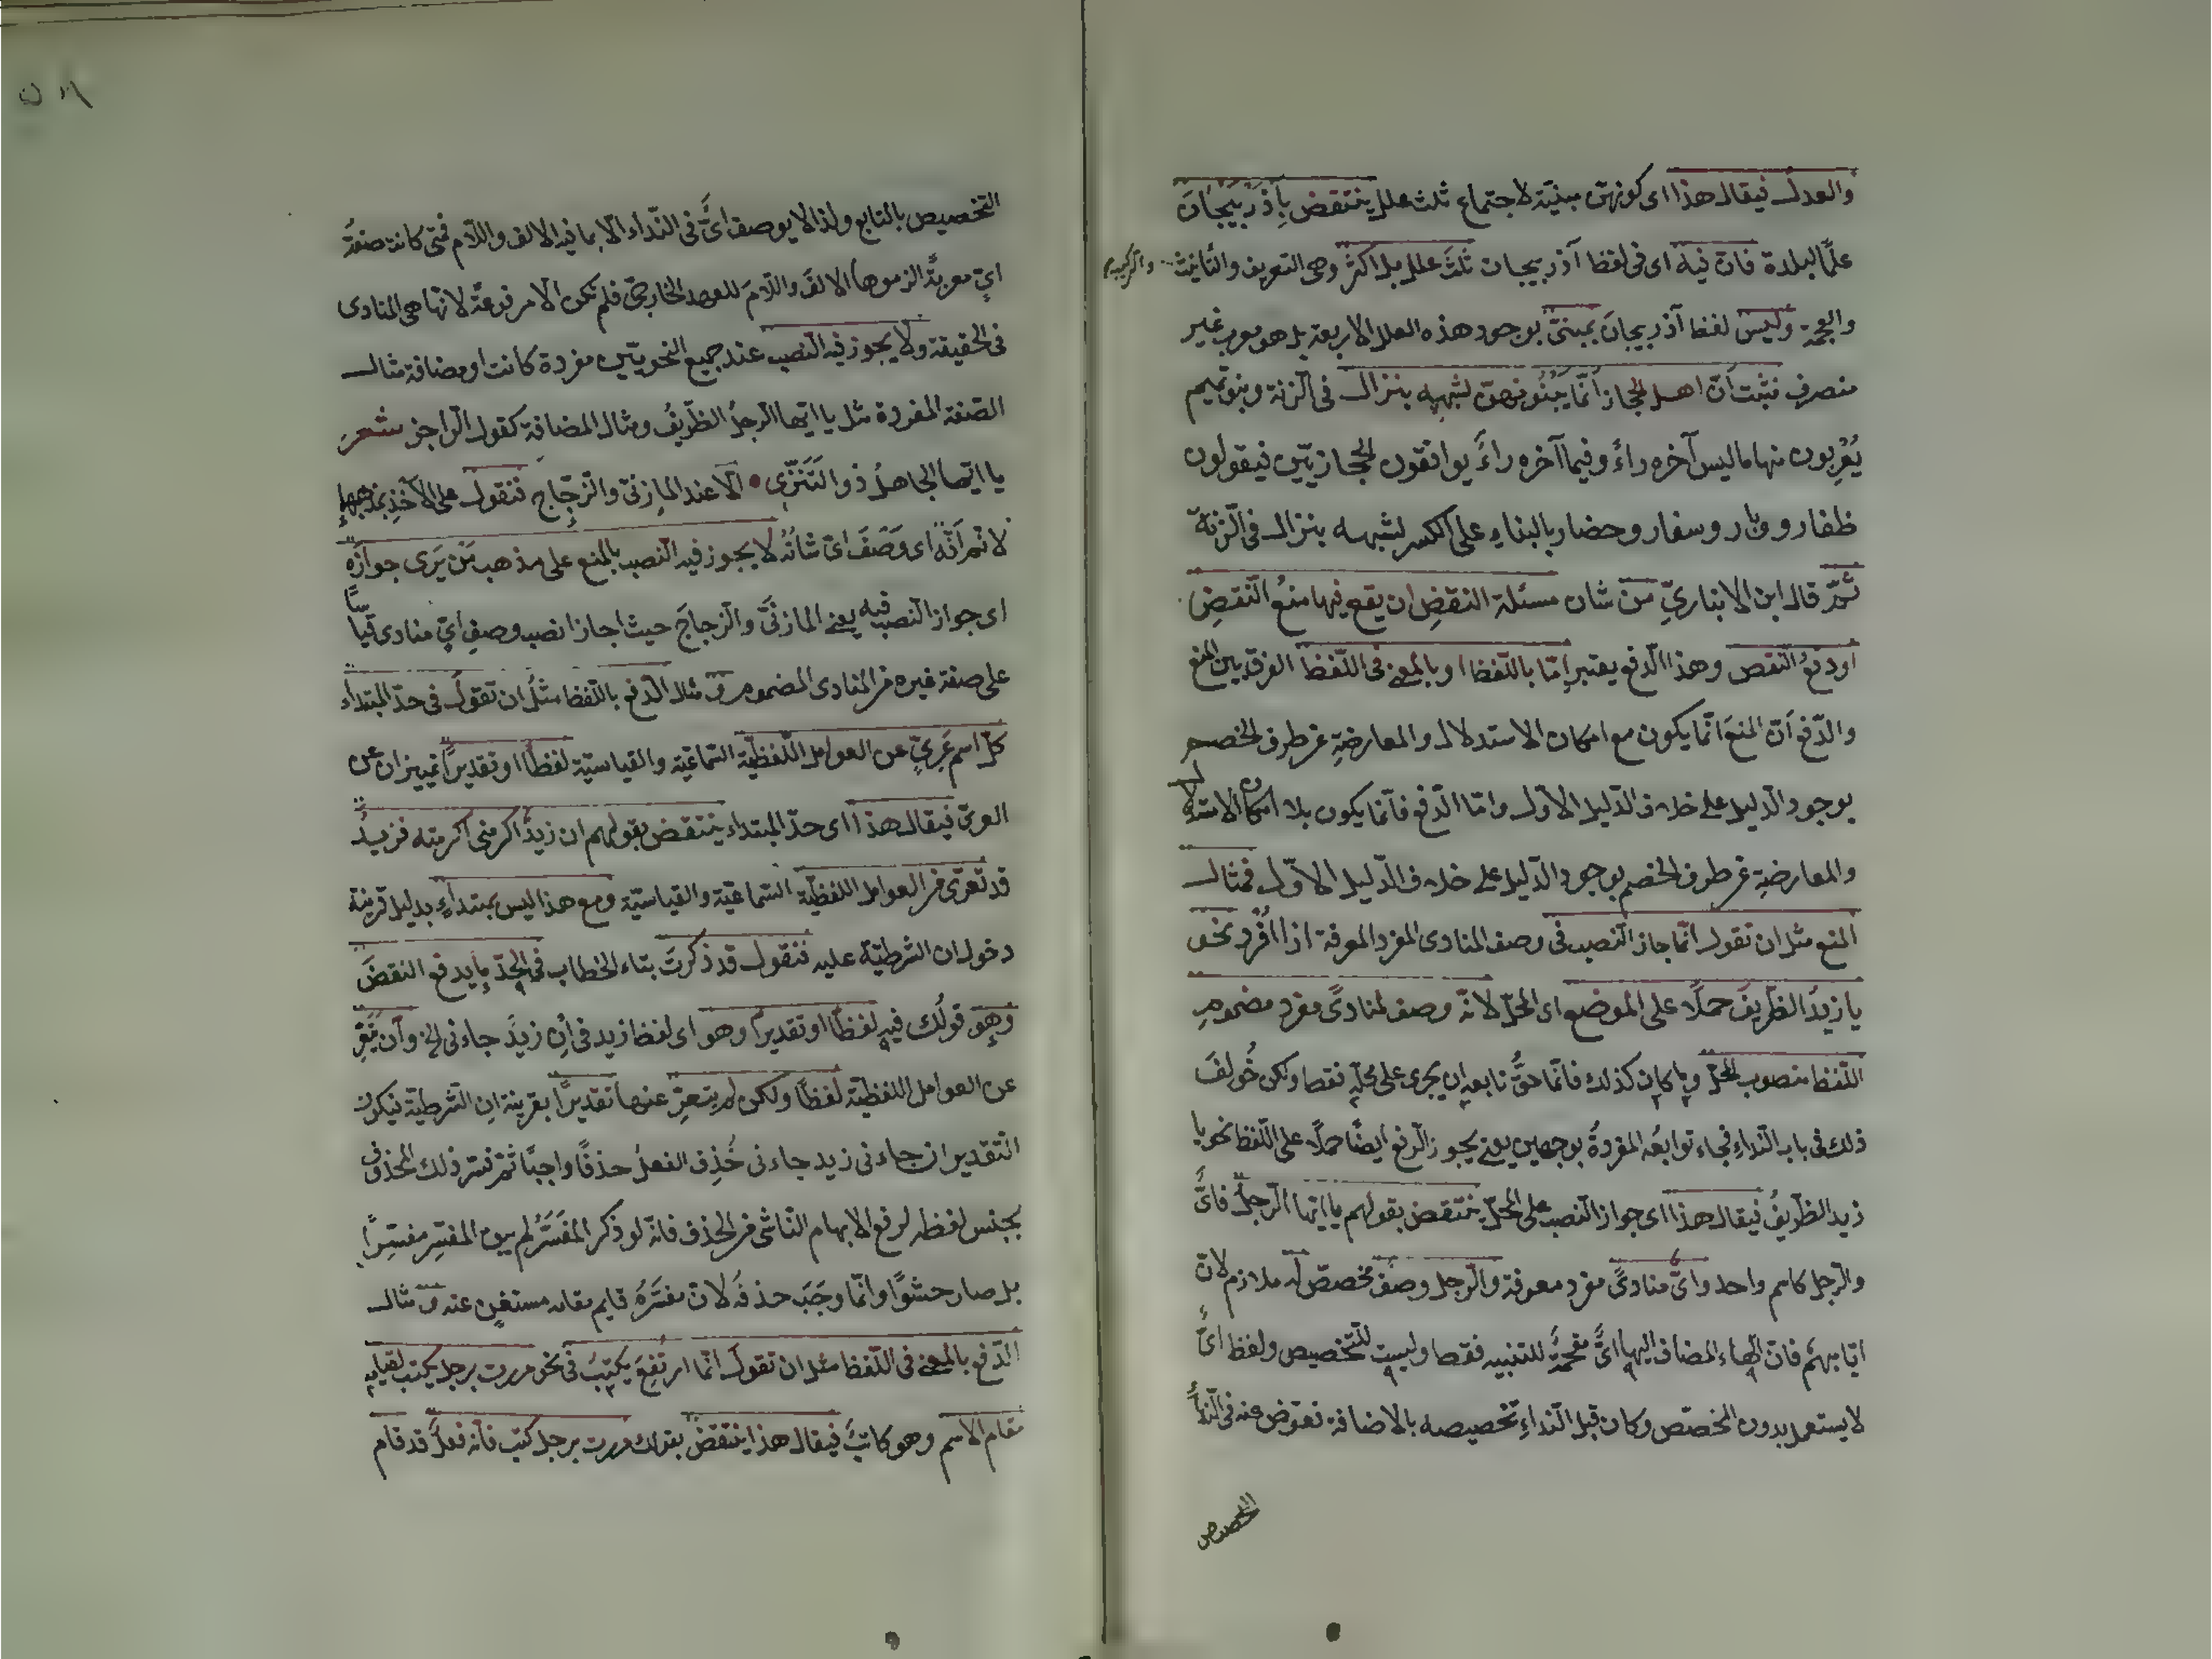 والعدل فيقال هذا اى كونهن مبنية لاجتماع ثلث علل ينتقض بآذربيجان
علما لبلدة فان فيه اى فى لفظ آذربيجان ثلث علل بل اكثر وهى التعريف والتأنيث والتركيب
والعجمة وليس لفظ آذربيجان بمبنى بوجود هذه العلل الاربعة بل هو معرب غير
منصرف فثبت ان اهل الحجاز انما يبنونهن لشبهه بنزال فى الزنة وبنو تميم
يعربون منها ما ليس آخره راء وفيما آخره راء يوافقون الحجازيين فيقولون
ظفار و وبار وسفار وحضار بالبناء على الكسر لشبهه بنزال فى الزنة
ثم قال ابن الانبارى من شان مسئلة النقض ان يقع فيها منع النقض
او دفع النقض وهذا الدفع يعتبر اما باللفظ او بالمعنى فى اللفظ الفرق بين المنع
والدفع ان المنع انما يكون مع امكان الاستدلال والمعارضة من طرف الخصم
بوجود الدليل على خلاف الدليل الاول واما الدفع فانما يكون بلا امكان الاستدلال
والمعارضة من طرف الخصم بوجود الدليل على خلاف الدليل الاول فمثال
المنع مثل ان تقول انما جاز النصب فى وصف المنادى المفرد المعرفة اذا افرد نحو
يا زيد الظريف حملا على الموضع اى المحل لانه وصف لمنادى مفرد مضموم
اللفظ منصوب المحل وما كان كذلك فانما حق تابعه ان يجرى على محله فقط ولكن خولف
ذلك فى باب النداء فجاء توابعه المفردة بوجهين يعنى يجوز الرفع ايضا حملا على اللفظ نحو يا
زيد الظريف فيقال هذا اى جواز النصب على المحل ينتقض بقولهم يا ايها الرجل فاى
والرجل كاسم واحد واى منادى مفرد معرفة والرجل وصف مخصص له ملازم لان
ايا مبهم فان الهاء المضاف اليها اى مقحمة للتنبيه فقط وليست للتخصيص ولفظ اى
لا يستعمل بدون المخصص وكان قبل النداء تخصيصه بالاضافة فعوض عنه فى النداء
التخصيص
التخصيص بالتابع ولذا لا يوصف اى فى النداء الا بما فيه الالف واللام فمتى كانت صفة
اى معربة الزموها الالف واللام للعهد الخارجى فلم تكن الا مرفوعة لانها هى المنادى
فى الحقيقة ولا يجوز فيه النصب عند جميع النحويين مفردة كانت او مضافة مثال
الصفة المفردة مثل يا ايها الرجل الظريف ومثال المضافة كقول الراجز شعر
يا ايها الجاهل ذو التنزى • الا عند المازنى والزجاج فنقول على الاخذ بمذهبها
لا نم انه اى وصف اى شانه لا يجوز فيه النصب بالمنع على مذهب من يرى جوازه
اى جواز النصب فيه يعنى المازنى والزجاج حيث اجازا نصب وصف اى منادى قياسا
على صفة غيره من المنادى المضموم و مثال الدفع باللفظ مثل ان تقول فى حد المبتداء
كل اسم عرى عن العوامل اللفظية السماعية والقياسية لفظا او تقديرا تمييزان عن
العرى فيقال هذا اى حد المبتداء ينتقض بقولهم ان زيد اكرمنى اكرمته فزيد
قد تعرى من العوامل اللفظية السماعية والقياسية ومع هذا ليس بمبتداء بدليل قرينة
دخول ان الشرطية عليه فنقول قد ذكرت بتاء الخطاب فى الحد ما يدفع النقض
وهو قولك فيه لفظا او تقديرا وهو اى لفظ زيد فى ان زيد جاءنى الخ وان تعرى
عن العوامل اللفظية لفظا ولكن لم يتعر عنها تقديرا بقرينة ان الشرطية فيكون
التقدير ان جاءنى زيد جاءنى حذف الفعل حذفا واجبا ثم فسر ذلك المحذوف
بجنس لفظه لرفع الابهام الناشى من الحذف فانه لو ذكر المفسر لم يبق المفسر مفسرا
بل صار حشوا وانما وجب حذفه لان مفسره قايم مقامه مستغن عنه و مثال
الدفع بالمعنى فى اللفظ مثل ان تقول انما ارتفع يكتب فى نحو مررت برجل يكتب لقيامه
مقام الاسم وهو كاتب فيقال هذا ينتقض بقولك مررت برجل كتب فانه فعل قد قام